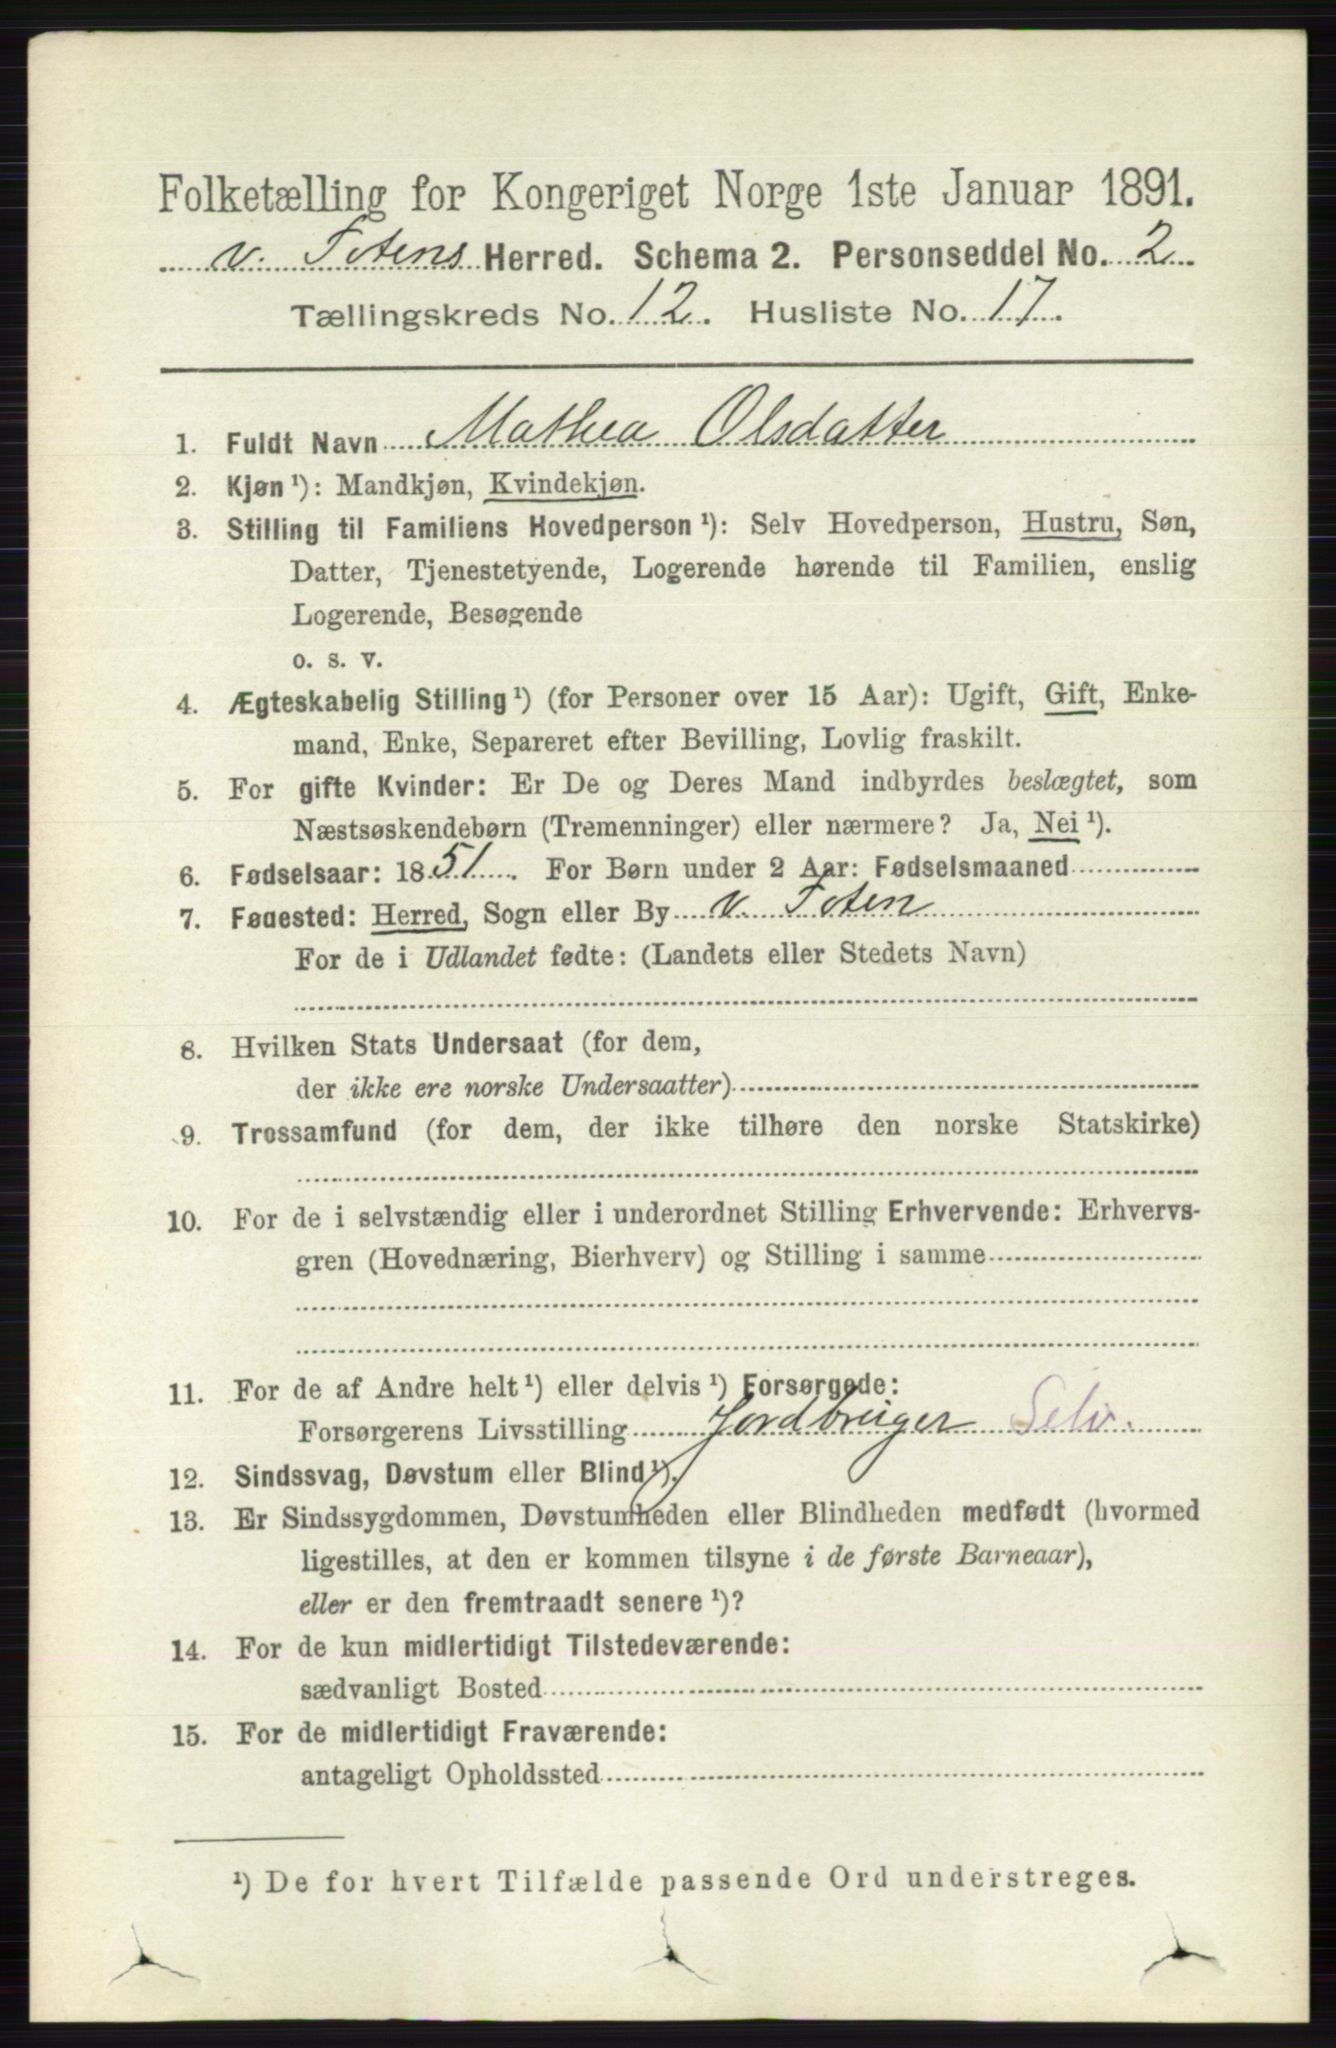 Folketælling for Kongeriget Norge 1ste Januar 1891.
v. Totens Herred. Schema 2. Personseddel No. 2
Tællingskreds No. 12. Husliste No. 17.
1. Fuldt Navn Mathea Olsdatter
2. Kjøn ¹): Mandkjøn, Kvindekjøn.
3. Stilling til Familiens Hovedperson ¹): Selv Hovedperson, Hustru, Søn,
Datter, Tjenestetyende, Logerende hørende til Familien, enslig
Logerende, Besøgende
o. s. v.
4. Ægteskabelig Stilling ¹) (for Personer over 15 Aar): Ugift, Gift, Enke-
mand, Enke, Separeret efter Bevilling, Lovlig fraskilt.
5. For gifte Kvinder: Er De og Deres Mand indbyrdes beslægtet, som
Næstsøskendebørn (Tremenninger) eller nærmere? Ja, Nei ¹).
6. Fødselsaar: 1851. For Børn under 2 Aar: Fødselsmaaned
7. Fødested: Herred, Sogn eller By v. Toten
For de i Udlandet fødte: (Landets eller Stedets Navn)
8. Hvilken Stats Undersaat (for dem,
der ikke ere norske Undersaatter)
9. Trossamfund (for dem, der ikke tilhøre den norske Statskirke)
10. For de i selvstændig eller i underordnet Stilling Erhvervende: Erhvervs-
gren (Hovednæring, Bierhverv) og Stilling i samme
11. For de af Andre helt ¹) eller delvis ¹) Forsørgede:
Forsørgerens Livsstilling Jordbruger Selv.
12. Sindssvag, Døvstum eller Blind ¹).
13. Er Sindssygdommen, Døvstumheden eller Blindheden medfødt (hvormed
ligestilles, at den er kommen tilsyne i de første Barneaar),
eller er den fremtraadt senere ¹)?
14. For de kun midlertidigt Tilstedeværende:
sædvanligt Bosted
15. For de midlertidigt Fraværende:
antageligt Opholdssted
¹) De for hvert Tilfælde passende Ord understreges.